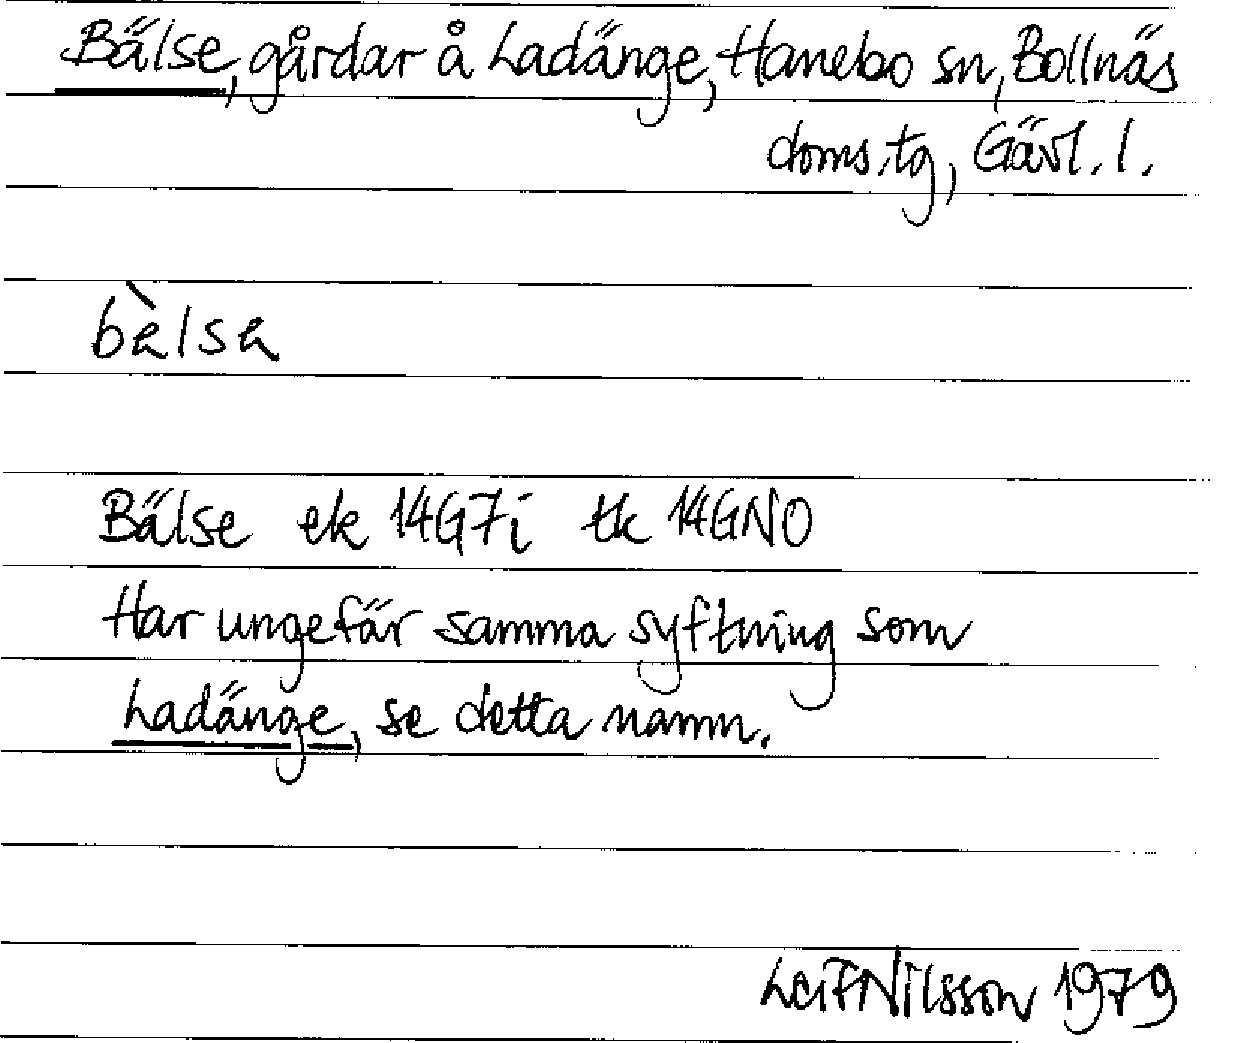 Bälse, gårdar å Ladänge, Hanebo sn, Bollnäs
doms.tg, Gävl. l.
bὲlsa
Bälse ek 14G7i tk 14GNO
Har ungefär samma syftning som
Ladänge, se detta namn.
Leif Nilsson 1979